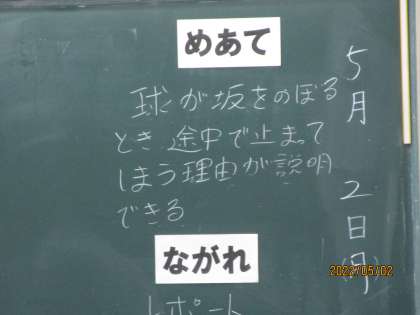 5月 2日(月)
めあて
球が坂をのぼる
とき途中で止まって
しまう理由が説明
できる
ながれ
レポート
2022/05/02